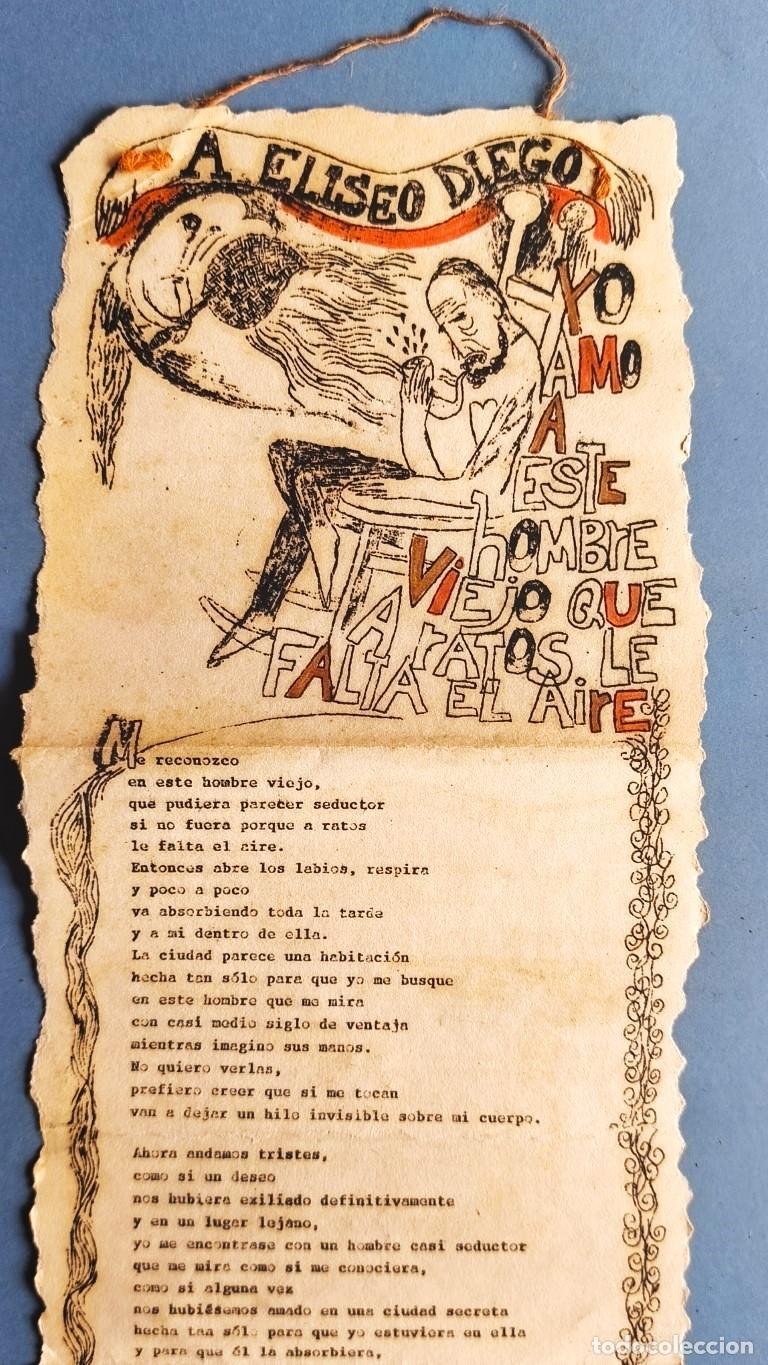 A ELISEO DIEGO
YO
AMO
A
ESTE
hOMBRE
VIEJO QUE
A rATOS LE
FALTA EL AIrE
Me reconozco
en este hombre viejo,
que pudiera parecer seductor
si no fuera porque a ratos
le falta el aire.
Entonces abre los labios, respira
y poco a poco
va absorbiendo toda la tarde
y a mi dentro de ella.
La ciudad parece una habitación
hecha tan sólo para que yo me busque
en este hombre que me mira
con casi medio siglo de ventaja
mientras imagino sus manos.
No quiero verlas,
prefiero creer que si me tocan
van a dejar un hilo invisible sobre mi cuerpo.
Ahora andamos tristes,
como si un deseo
nos hubiera exiliado definitivamente
y en un lugar lejano,
yo me encontrase con un hombre casi seductor
que me mira como si me conociera,
como si alguna vez
nos hubiésemos amado en una ciudad secreta
hecha tan sólo para que yo estuviera en ella
y para que él la absorbiera,
todocoleccion